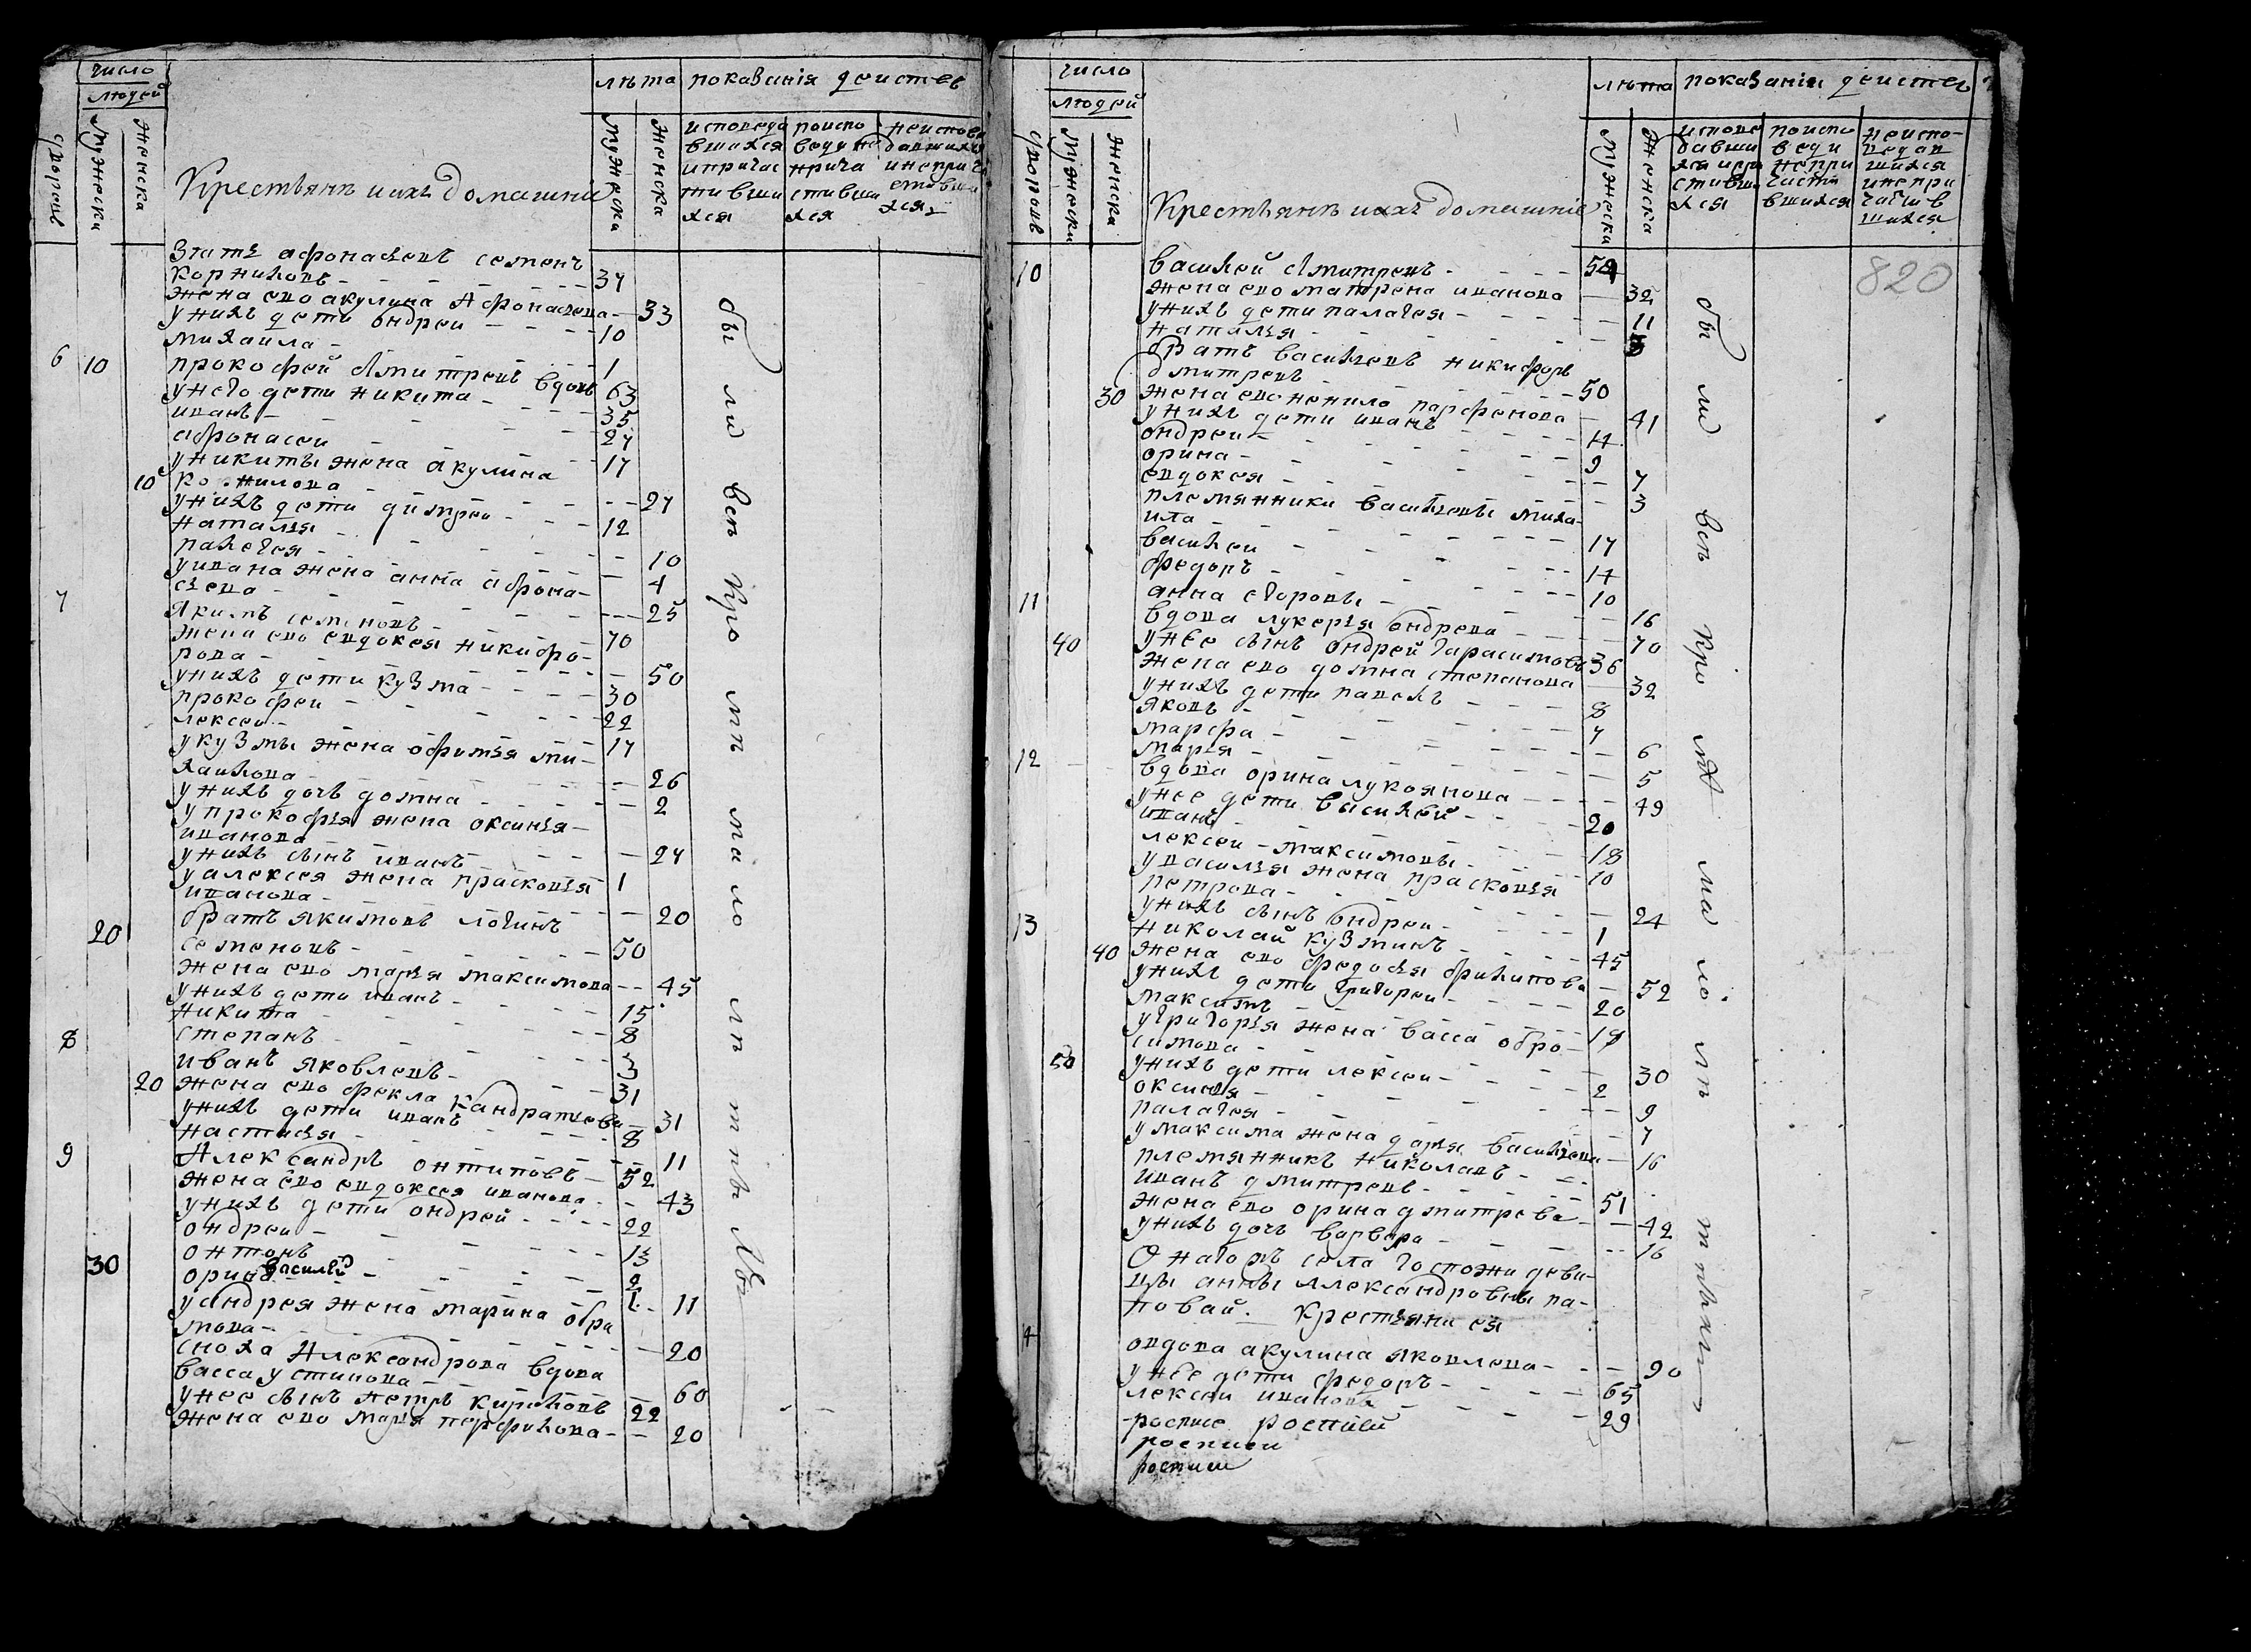 число
людей
лѣта показанія действ
дворовъ
мужеска
женска
Крестьянѣ и ихъ домашніе
мужеска
женска
исповеда
вшихся
и причас
тивши
хся
по испо
веди не
прича
стивши
хся
неиспове
давшихся
и неприча
стивши
хся
Зять афонасьевъ семенъ
корниловъ 34
жена ево акулина Афонасьева 33
у нихъ дети ондреи 10
михаила 1
6 10 прокофей Дмитревъ вдовъ 63
у него дети никита 35
иванъ 24
афонасеи 17
у никиты жена акулина
10 корнилова 24
у нихъ дети димтреи 12
наталья 10
палегея 4
у ивана жена анна афона-
сьева 25
7 Якимъ семеновъ 70
жена ево евдокея никифо-
рова 50
у нихъ дети кузма 30
прокофеи 22
лексеи 17
у кузмы жена офимья ми-
хаилова 26
у нихъ дочь домна 2
у прокофья жена оксинья
иванова 24
у нихъ сынъ иванъ 1
у алексея жена прасковья
иванова 20
20 братъ якимовъ логинъ
семеновъ 50
жена ево марья максимова 45
у нихъ дети иванъ 15
никита 8
степанъ 3
8 иванъ яковлевъ 31
20 жена ево фекла кандратьева 31
у нихъ дети иванъ 8
настасья 11
9 Александръ онтиповъ 52
жена ево евдокея иванова 43
у нихъ дети ондрей 22
ондреи 13
онтонъ 9
30 орина василей 1 11
у андрея жена марина обра
мова 20
сноха Александрова вдова
васса устинова 60
у нее сынъ петръ кириловъ 22
жена ево марья перфилова 20
были всѣ кромѣ малолѣтнѣхъ
число
людей
лѣта показаніи действ
дворовъ
мужески
женска
Крестьянѣ и ихъ домашніе
мужески
женска
испове
давши
хся и при
стивши
хся
по испо
веди
непри
части
вшихся
неиспо-
ведав
шихся
и непри
части в
шихся
820
10 василей Дмитревъ 54
жена ево матрена иванова 32
у нихъ дети палагея 11
наталья
братъ васильевъ никифоръ
дмитревъ 50
30 жена ево ненило парфенова 41
у нихъ дети иванъ 14
ондреи 9
орина 7
евдокея 3
племянники васильевы миха-
ила 17
василеи 14
федоръ 10
анна егоровы 16
11 вдова лукерья ондрева 70
40 у нее сынъ ондрей гарасимовъ 36
жена ево домна степанова 32
у нихъ дети павелъ 8
яковъ 7
марфа 6
марья 5
12 вдова орина лукоянова 49
у нее дети василей 20
иванъ 18
лексеи максимовы 10
у василья жена прасковья
петрова 24
у нихъ сынъ ондреи 1
13 николай кузминъ 45
40 жена ево федосья филипова 52
у нихъ дети григореи 20
максимъ 17
у григорья жена васса обро-
симова 30
50 у нихъ дети лексеи 2
оксинья 9
палагея 7
у максима жена дарья васильева 16
племянникъ николаевъ
иванъ дмитревъ 51
жена ево орина дмитрева 42
у нихъ дочь варвара 16
Онагожъ села госпожи деви-
цы анны Александровны па-
повай. крестьяни ея
овдова акулина яковлева 90
у нее дети федоръ 65
лексеи иванова 29
росписе росписи
росписи
росписи
были всѣ кромѣ малолѣтнѣхъ